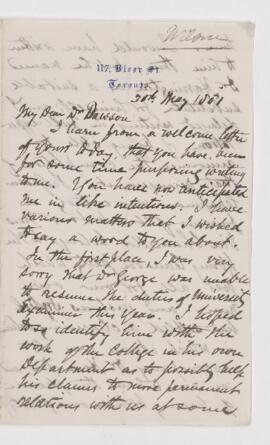 Wilson
117, Bloor St.
Toronto.
30th May 1881
My Dear Dr Dawson
I learn from a welcome letter
of yours today, that you have been
for some time purposing writing
to me. You have not anticipated
me in like intentions. I have
various matters that I wished
to say a word to you about.
In the first place, I was very
sorry that Dr George was unable
to resume the duties of University
Examiner this year. I hoped
to so identify him with the
work of the College in his own
Department as to possibly help
his claims to more permanent
relations with us at some